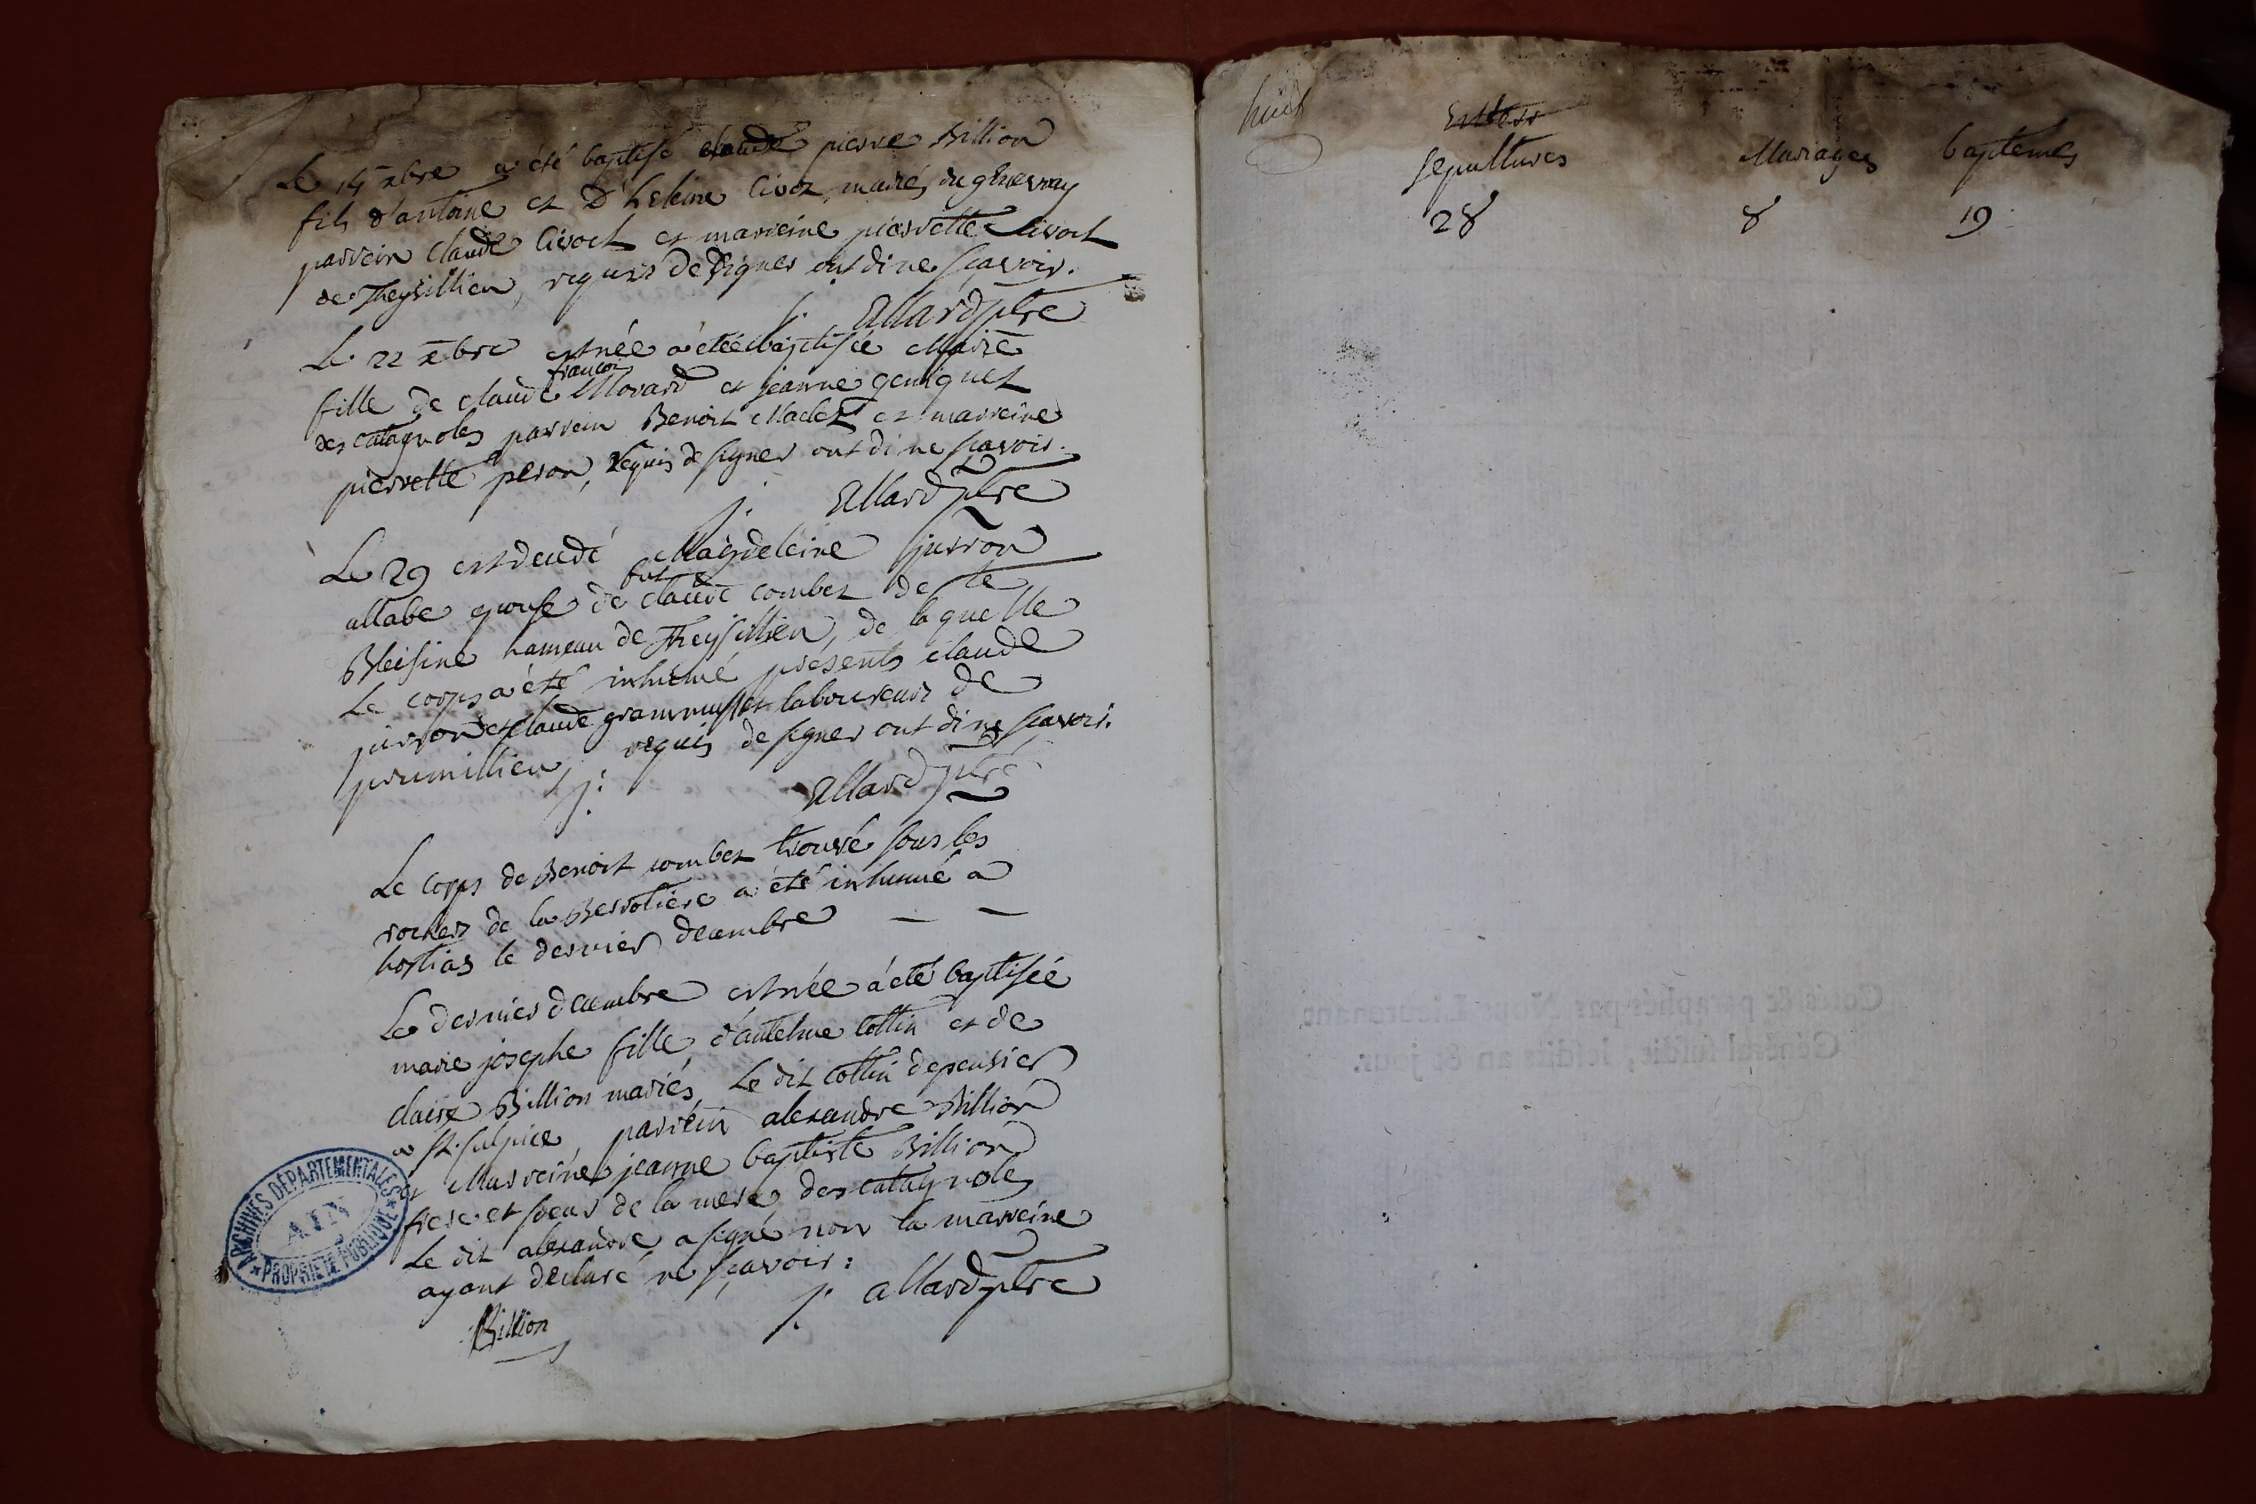 Le 14 xbre a été baptisé claude pierre Billion
fils d'antoine et D'heleine livet mariés du genevray
parrein Claude livoct et marreine pierrette Livoct
de Theysillieu, requis de signer ont di ne scavoir.
j. Allard ptre
Le 22 xbre est née a étée baptisée Marie
francoi
fille de claude Morard et jeanne geniquet
des catagnoles parrein Benoit Maclet et marreine
pierrette peron, requis de signer ont di ne scavoir.
j. Allard ptre
Le 29 est decedé Magdeleine jurron
fut
allabe epouse de claude combet de la
Bleisine hameau de Theysillieu, de laquelle
Le corps a été inhumé presents claude
jurron et claude grammusset laboureurs de
prumillieu, requis de signer ont di ne scavoir.
j. Allard ptre
Le corps de Benoit combet trouvé sous les
rochers de la Berrotiere a été inhumé a
hostias le dernier decembre — —
Le dernier decembre est née a été baptisée
marie josephe fille d'antelme Cottin et de
claire Billion mariés, Le dit Cottin depensier
a St. sulpice, parrein alexandre Billion
et Marreine jeanne baptiste Billion
frere et soeur de la mere, des catagnoles
Le dit alexandre a signé non la marreine
ayant declaré ne scavoir :
j. allard ptre
Billion
ARCHIVES DÉPARTEMENTALES
AIN
PROPRIÉTÉ PUBLIQUE
huit
sepultures Mariages baptemes
28 8 19
Cotés & paraphés par Nous Lieutenant
Général susdit, lesdits an & jour.